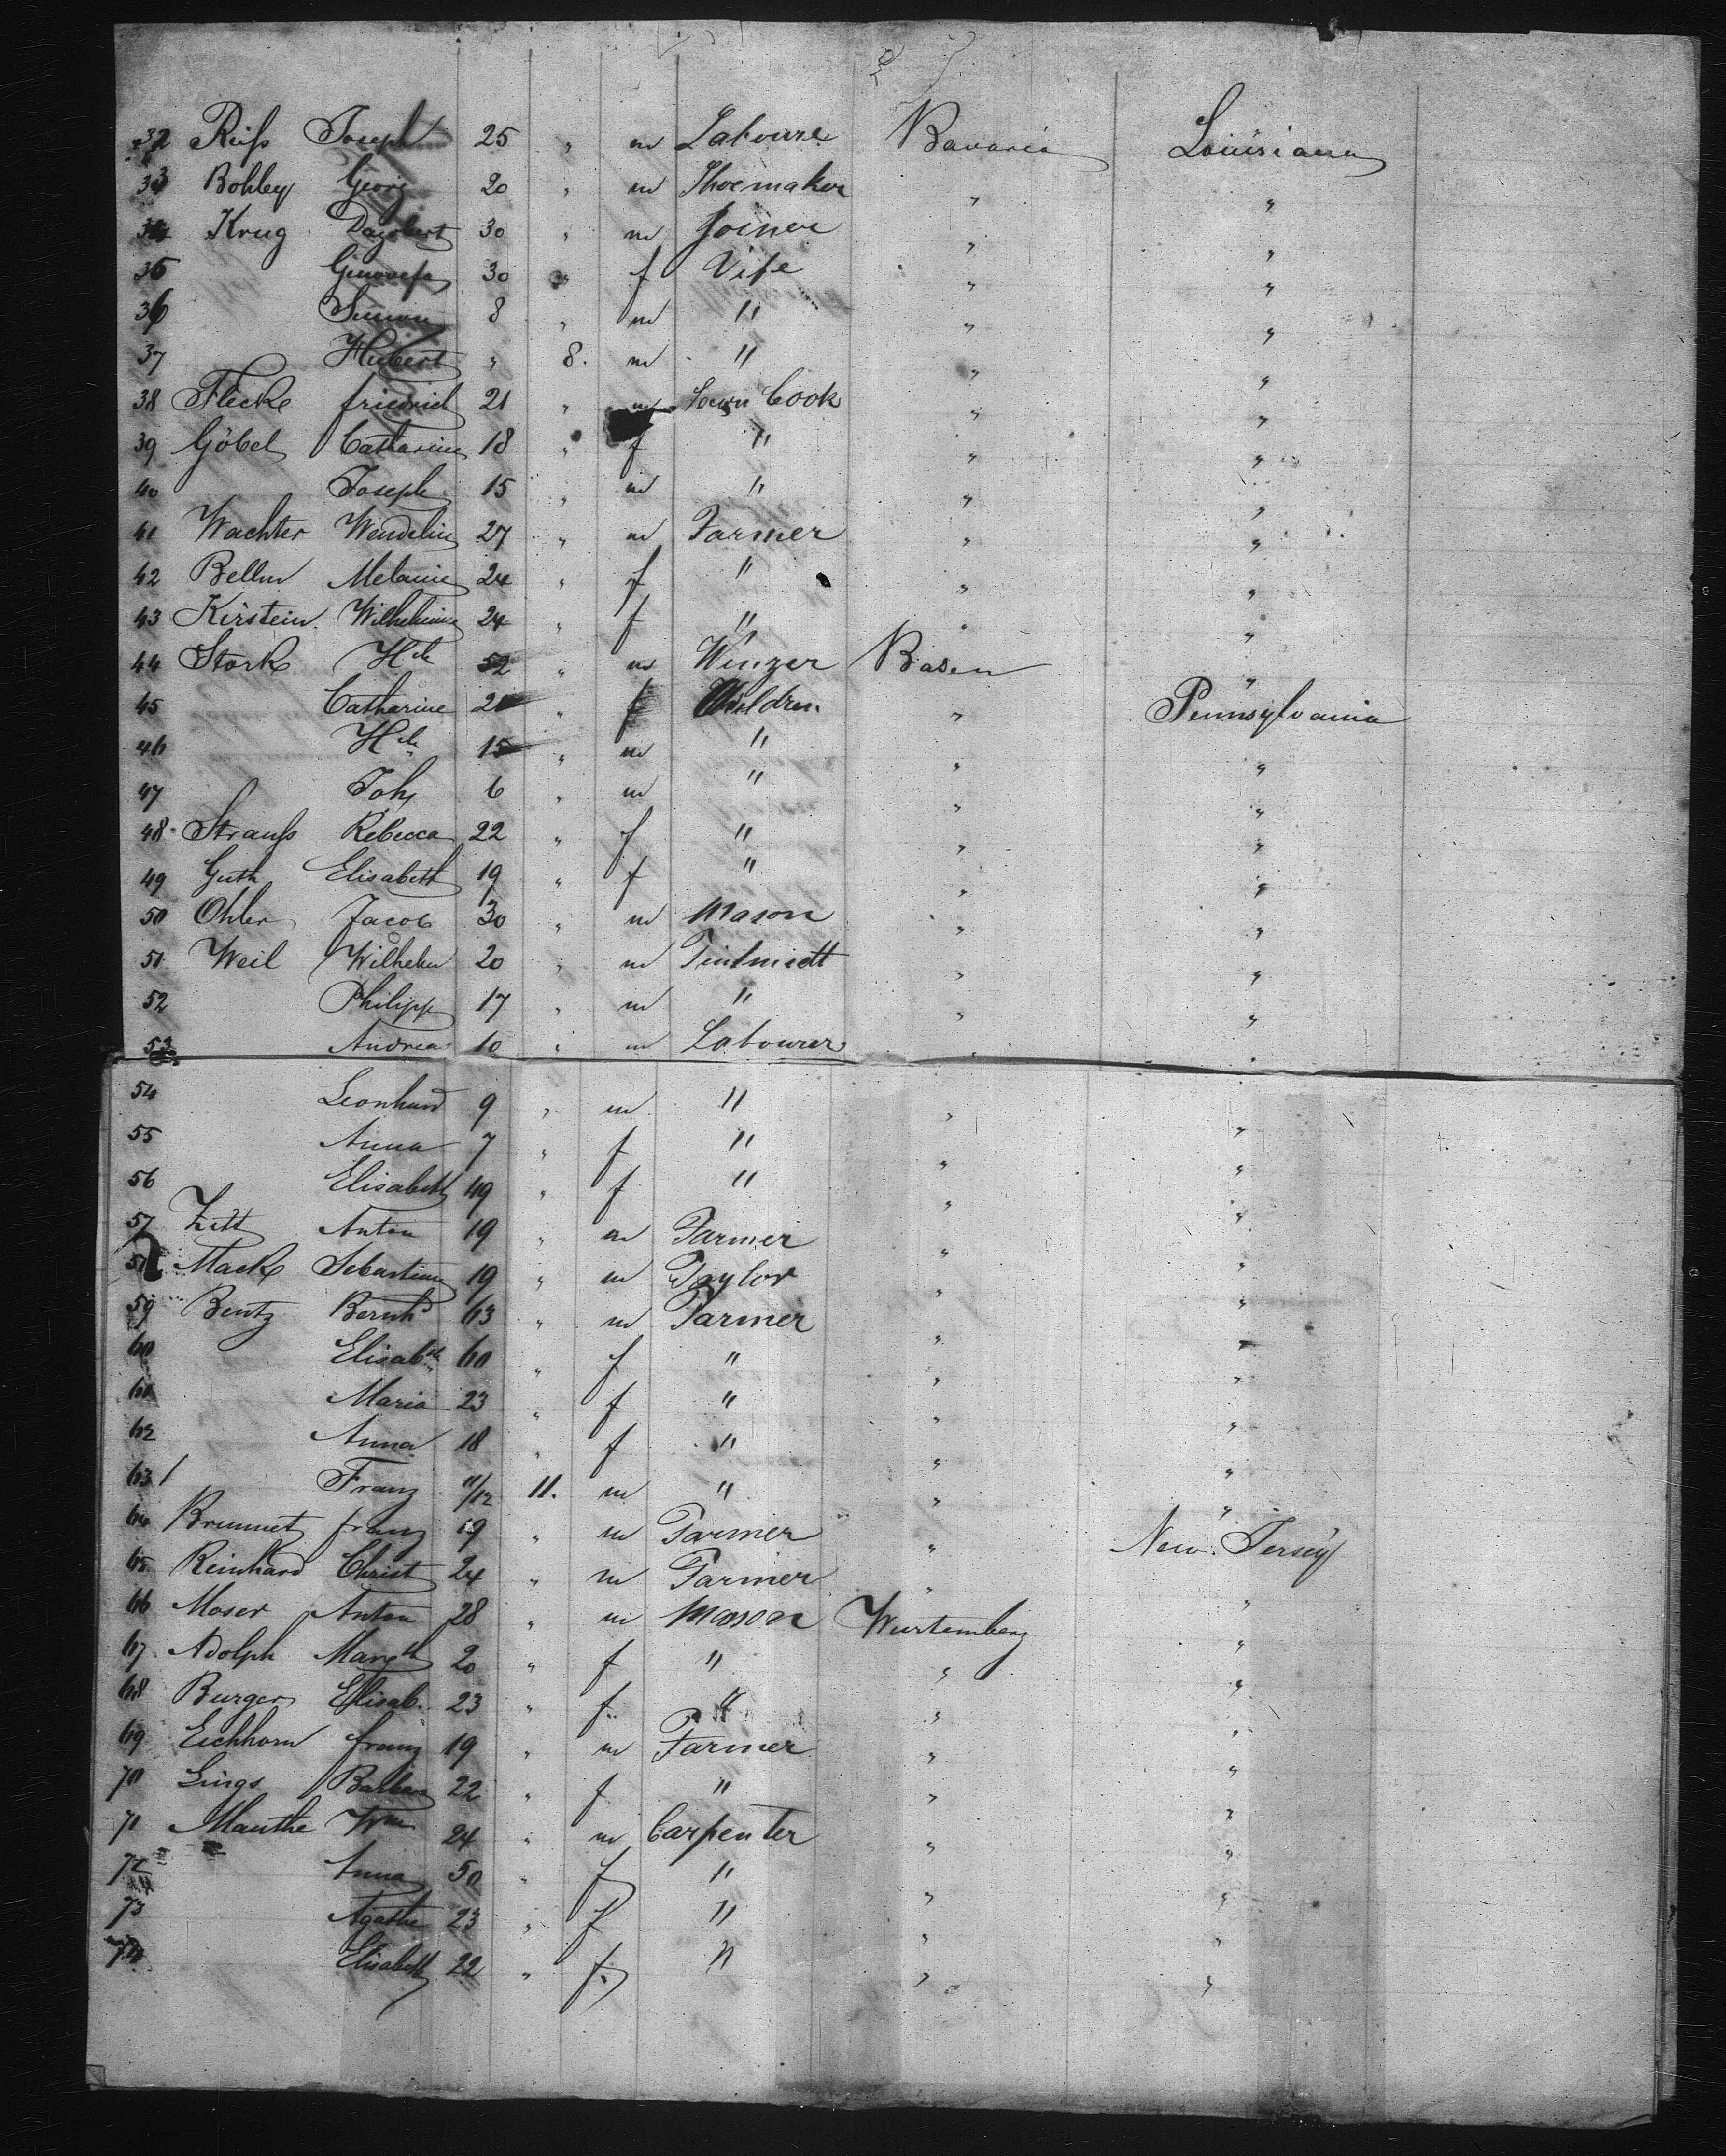 32 Reiß Joseph 25 " m Labourer Bavaria Louisiana
33 Bohley Georg 20 " m Shoemaker " "
34 Krug Dagobert 30 " m Joiner " "
35 Genovefa 30 " f Vife " "
36 Simon 8 " m " " "
37 Hubert " 8. m " " "
38 Flecke friedrich 21 " m Cook " "
39 Göbel Catharina 18 " f " " "
40 Joseph 15 " m " " "
41 Wachter Wendelin 27 " m Farmer " "
42 Bellm Melanie 24 " f " " "
43 Kirstein Wilhelmine 24 " f " " "
44 Stork Hch 52 " m Winzer Baden "
45 Catharine 20 " f Children " Pennsylvania
46 Hch 15 " m " " "
47 Joh 6 " m " " "
48 Strauß Rebecca 22 " f " " "
49 Guth Elisabeth 19 " f " " "
50 Ohler Jacob 30 " m Mason " "
51 Weil Wilhelm 20 " m " "
52 Philipp 17 " m " " "
53 Andreas 10 " m Labourer " "
54 Leonhard 9 " m " " "
55 Anna 7 " f " " "
56 Elisabeth 49 " f " " "
57 Zitt Anton 19 " m Farmer " "
58 Mack Sebastian 19 " m Taylor " "
59 Bentz Bernhd 63 " m Farmer " "
60 Elisabth 60 " f " " "
61 Maria 23 " f " " "
62 Anna 18 " f " " "
63 Franz 11/12 11. m " " "
64 Brunnet franz 19 " m Farmer " New Jersey
65 Reinhard Christ 24 " m Farmer " "
66 Moser Anton 28 " m Mason Wurtemberg "
67 Adolph Margth 20 " f " " "
68 Burger Elisab. 23 " f. " " "
69 Eichhorn franz 19 " m Farmer " "
70 Lings Barbara 22 " f " " "
71 Mauthe Wm 24 " m Carpenter " "
72 Anna 50 " f " " "
73 Agathe 23 " f " " "
74 Elisabeth 22 " f. " " "